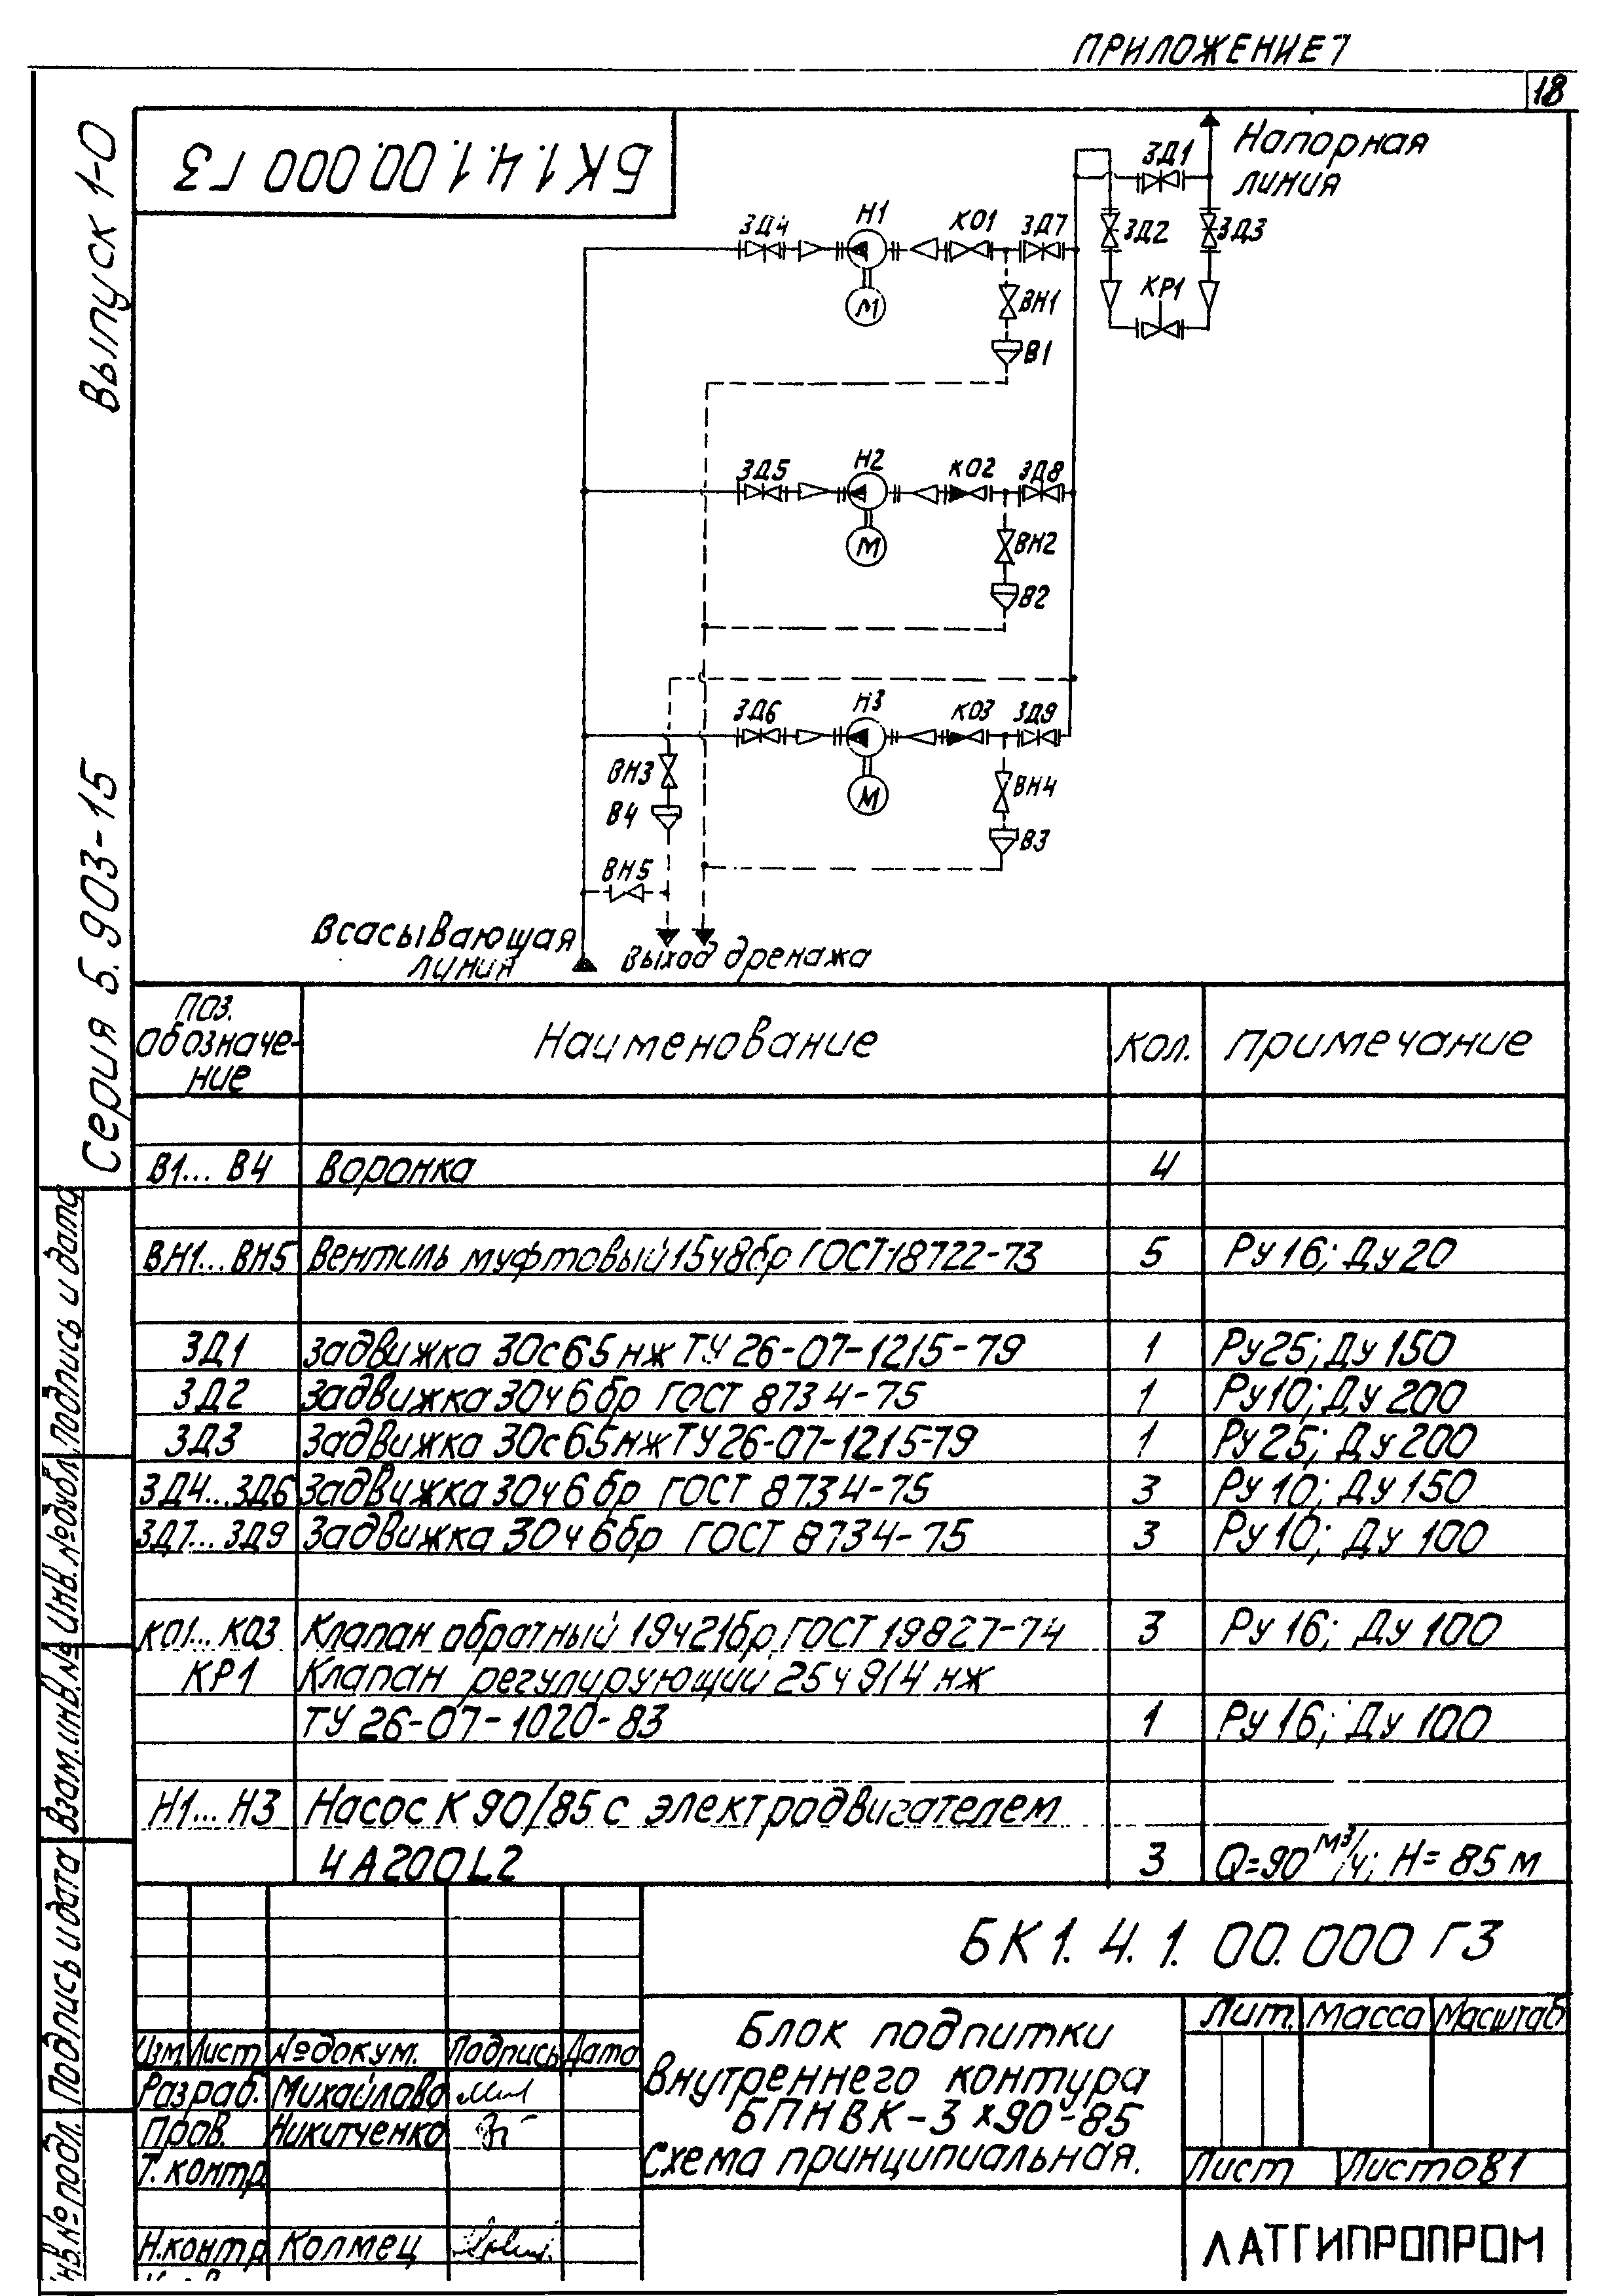 ПРИЛОЖЕНИЕ 7
18
БК1.4.1.00.000 Г3
Выпуск 1-0
Серия 5.903-15
Напорная
линия
ЗД1
ЗД2
ЗД3
КР1
ЗД4
Н1
КО1
ЗД7
М
ВН1
В1
ЗД5
Н2
КО2
ЗД8
М
ВН2
В2
ЗД6
Н3
КО3
ЗД9
М
ВН3
В4
ВН4
В3
ВН5
Всасывающая
линия
Выход дренажа
Поз. обозначе-
ние
Наименование
Кол.
Примечание
В1... В4 Воронка 4
ВН1... ВН5 Вентиль муфтовый 15ч8бр ГОСТ 18722-73 5 Ру 16; Ду 20
ЗД1 Задвижка 30с65нж ТУ 26-07-1215-79 1 Ру25; Ду 150
ЗД2 Задвижка 30ч6бр ГОСТ 8734-75 1 Ру10; Ду 200
ЗД3 Задвижка 30с65нж ТУ26-07-1215-79 1 Ру 25; Ду 200
ЗД4...ЗД6 Задвижка 30ч6бр ГОСТ 8734-75 3 Ру 10; Ду 150
ЗД7... ЗД9 Задвижка 30ч6бр ГОСТ 8734-75 3 Ру 10; Ду 100
КО1... КО3 Клапан обратный 19ч21бр ГОСТ 19827-74 3 Ру 16; Ду 100
КР1 Клапан регулирующий 25ч914 нж
ТУ 26-07-1020-83 1 Ру 16; Ду 100
Н1... Н3 Насос К 90/85 с электродвигателем
4А200L2 3 Q=90 м³/ч; Н= 85 м
БК1.4.1.00.000 Г3
Блок подпитки
внутреннего контура
БПНВК-3х90-85
Схема принципиальная.
Лит. Масса Масштаб
Лист Листов 1
ЛАТГИПРОПРОМ
Изм Лист №докум. Подпись Дата
Разраб. Михайлова
Пров. Никитченко
Т. контр
Н.контр Колмец
Подпись и дата
Инв.№дубл.
Взам.инв.№
Подпись и дата
Инв.№подл.